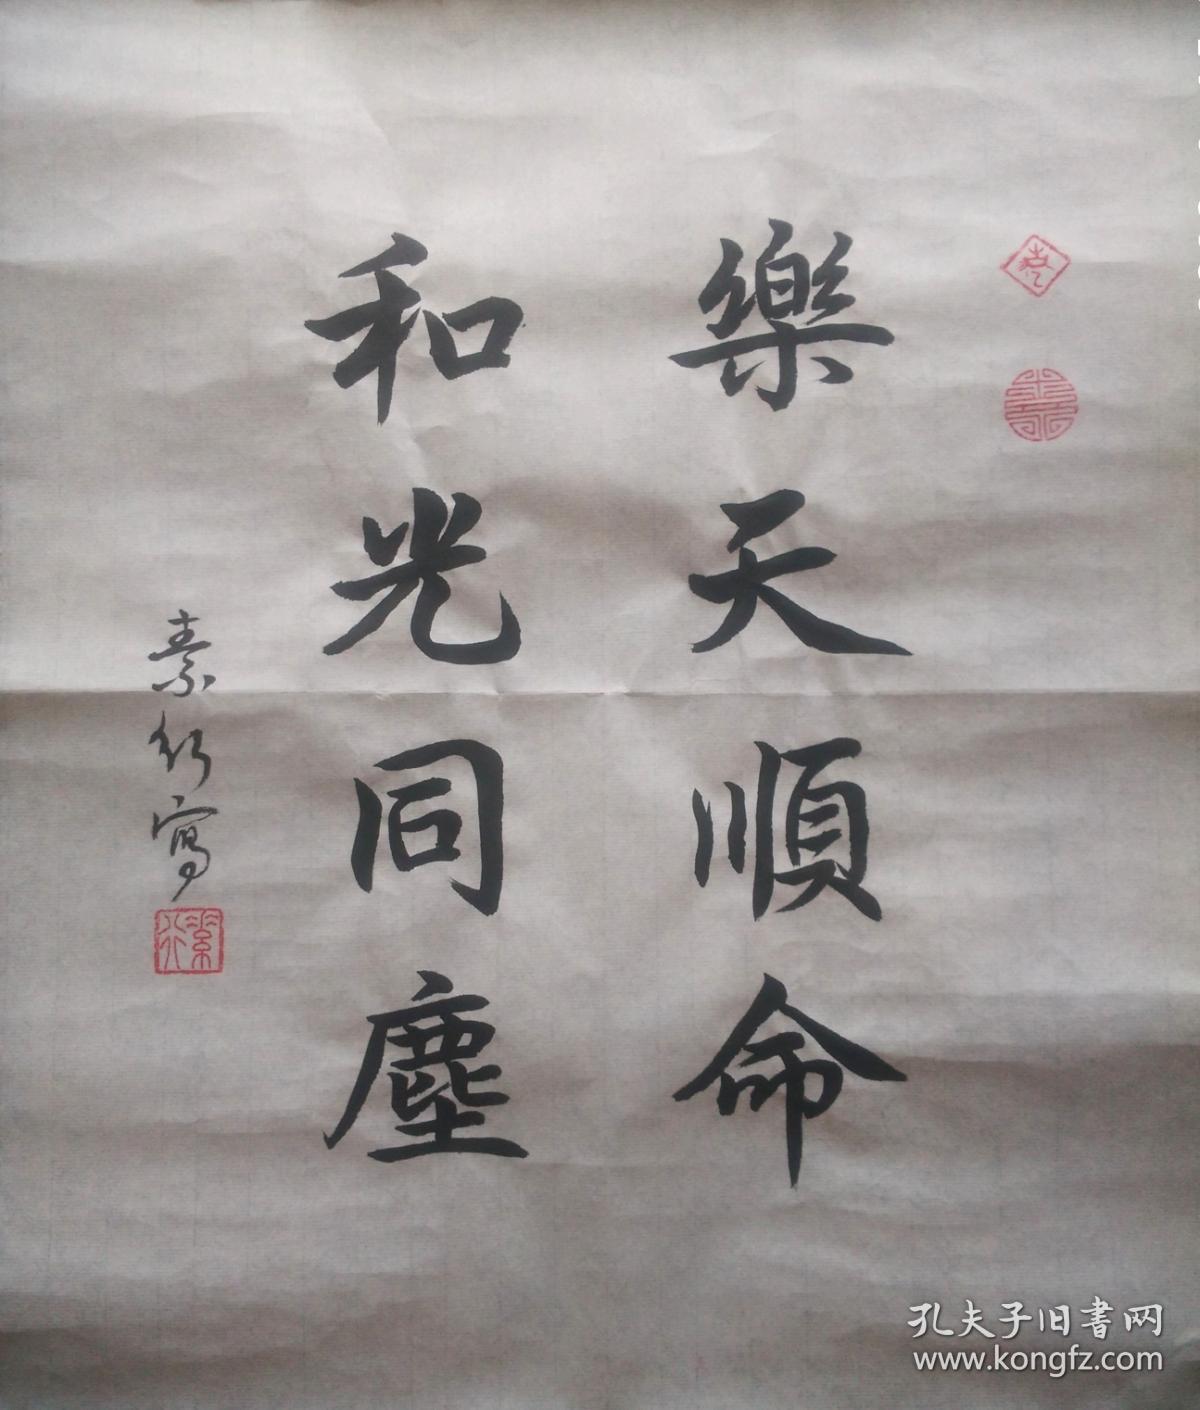 樂天順命
和光同塵
素行寫
素行
孔夫子旧書网
www.kongfz.com